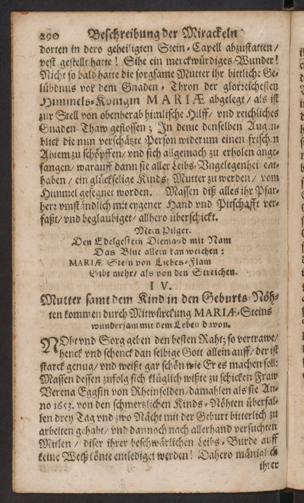 290 Beschreibung der Mirackeln
dorten in dero geheiligten Stein-Capell abzustatten/
vest gestellt hatte! Sihe ein merckwürdiges Wunder!
Nicht so bald hatte die sorgsame Mutter ihr bittliche Ge-
lübdnus vor dem Gnaden-Thron der glorreichesten
Himmels-Königin MARIÆ abgelegt/ als ist
zur Stell von obenherab himlische Hilff/ vnd reichliches
Gnaden Thaw geflossen; In deme denselben Augen-
blick die nun verschätzte Person widerum einen frischen
Ahtem zu schöpffen/ vnd sich allgemach zu erholen ange-
fangen/ warauff dann sie aller Leibs-Vngelegenheit ent-
haben/ ein glückselige Kinds-Mutter zu werden/ vom
Himmel gesegnet worden. Massen diß alles ihr Pfar-
herr vmständlich mit eygener Hand vnd Pitschafft ver-
faßt/ vnd beglaubiget/ allhero überschickt.
Mein Pilger.
Den Edelgestein Diemand mit Nam
Das Blut allein kan weichen:
MARIÆ Stein von Liebes-Flam
Gibt mehr/ als von den Streichen.
IV.
Mutter samt dem Kind in den Geburts-Nöh-
ten kommen durch Mitwürckung MARIÆ-Steins
wundersam mit dem Leben davon.
NOht vnd Sorg geben den besten Raht; so vertrawe/
henck vnd schenck dan selbige Gott allein auff/ der ist
starck genug/ vnd weißt gar schön wie Er es machen soll:
Massen dessen zufolg sich klüglich wißte zu schicken Fraw
Verena Eggsin von Rheinfelden/ damahlen als sie An-
no 1652. von den schmertzlichen Kinds-Nöhten überfal-
len drey Tag vnd zwo Nächt mit der Geburt bitterlich zu
arbeiten gehabt/ vnd dannoch nach allerhand versuchten
Mitlen/ diser ihrer beschwärlichen Leibs-Burde auff
keine Weiß könte entlediget werden! Dahero mäniglich
ihrer